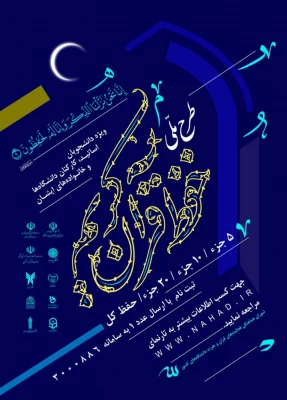 إنا نحن نزلنا الذكر وإنا له لحافظون
طرح ملی
حفظ قرآن کریم
ویژه دانشجویان
اساتید، کارکنان دانشگاه‌ها
و خانواده‌های ایشان
۵ جزء / ۱۰ جزء / ۲۰ جزء / حفظ کل
ثبت نام با ارسال عدد ۱ به سامانه ۳۰۰۰۸۸۶
جهت کسب اطلاعات بیشتر به تارنمای
WWW.NAHAD.IR
مراجعه نمایید.